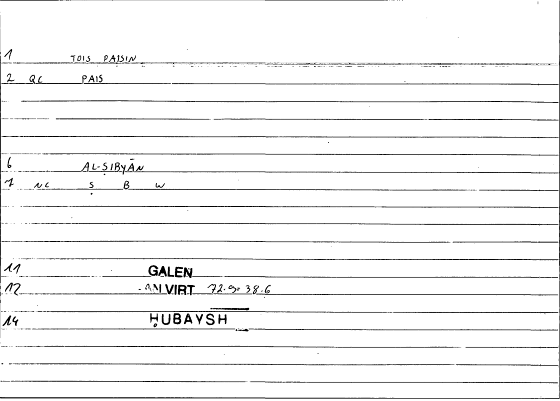 1 TOIS PAISIN
2 QC PAIS
6 AL-ṢIBYĀN
7 NC Ṣ B W
11 GALEN
12 AN VIRT 72.9-38.6
14 ḤUBAYSH